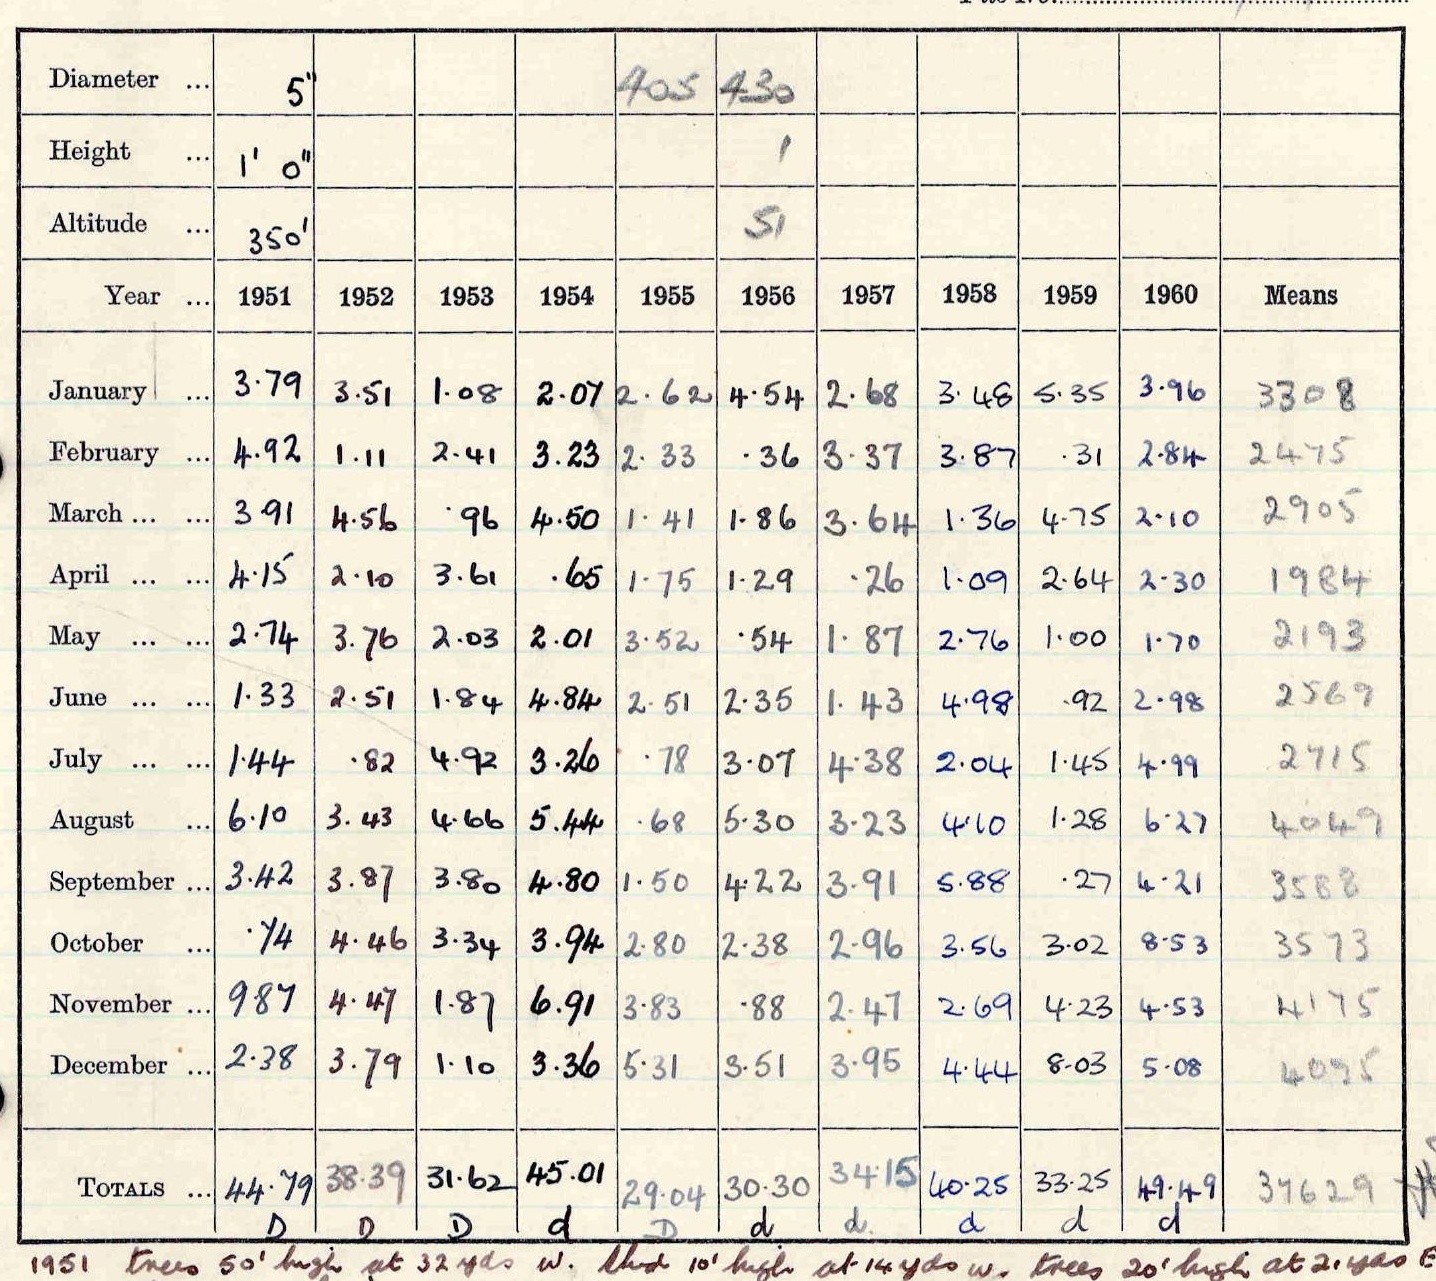 Diameter ... 5" 405 430
Height ... 1' 0" 1
Altitude ... 350' 51
Year ... 1951 1952 1953 1954 1955 1956 1957 1958 1959 1960 Means
January ... 3.79 3.51 1.08 2.07 2.62 4.54 2.68 3.48 5.35 3.96 3308
February ... 4.92 1.11 2.41 3.23 2.33 .36 3.37 3.87 .31 2.84 2475
March ... ... 3 91 4.56 .96 4.50 1.41 1.86 3.64 1.36 4.75 2.10 2905
April ... ... 4.15 2.10 3.61 .65 1.75 1.29 .26 1.09 2.64 2.30 1984
May ... ... 2.74 3.76 2.03 2.01 3.52 .54 1.87 2.76 1.00 1.70 2193
June ... ... 1.33 2.51 1.84 4.84 2.51 2.35 1.43 4.98 .92 2.98 2569
July ... ... 1.44 .82 4.92 3.26 .78 3.07 4.38 2.04 1.45 4.99 2715
August ... 6.10 3.43 4.66 5.44 .68 5.30 3.23 4.10 1.28 6.27 4049
September ... 3.42 3.87 3.80 4.80 1.50 4.22 3.91 5.88 .27 4.21 3588
October ... .74 4.46 3.34 3.94 2.80 2.38 2.96 3.56 3.02 8.53 3573
November ... 9 87 4.47 1.87 6.91 3.83 .88 2.47 2.69 4.23 4.53 4175
December ... 2.38 3.79 1.10 3.36 5.31 3.51 3.95 4.44 8.03 5.08 4095
TOTALS ... 44.79 38.39 31.62 45.01 29.04 30.30 34.15 40.25 33.25 49.49 37629
D D D d D d d. d d d
1951 trees 50' high at 32 yds w. shed 10' high at 14 yds w. trees 20' high at 21 yds E